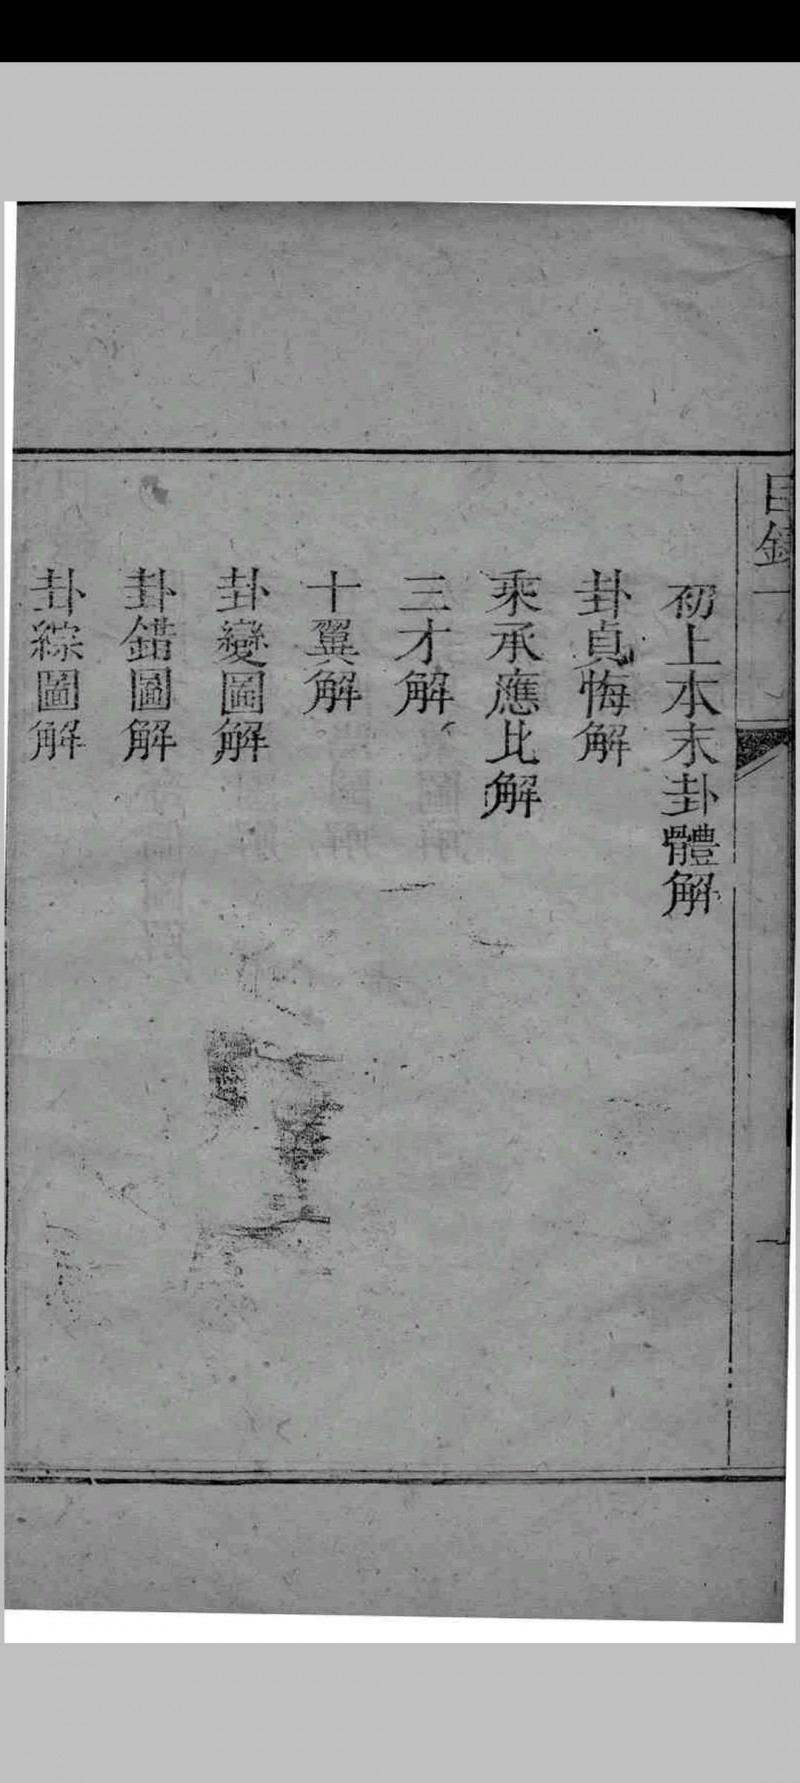 目錄
初上本末卦體解
卦貞悔解
乘承應比解
三才解
十翼解
卦變圖解
卦錯圖解
卦綜圖解